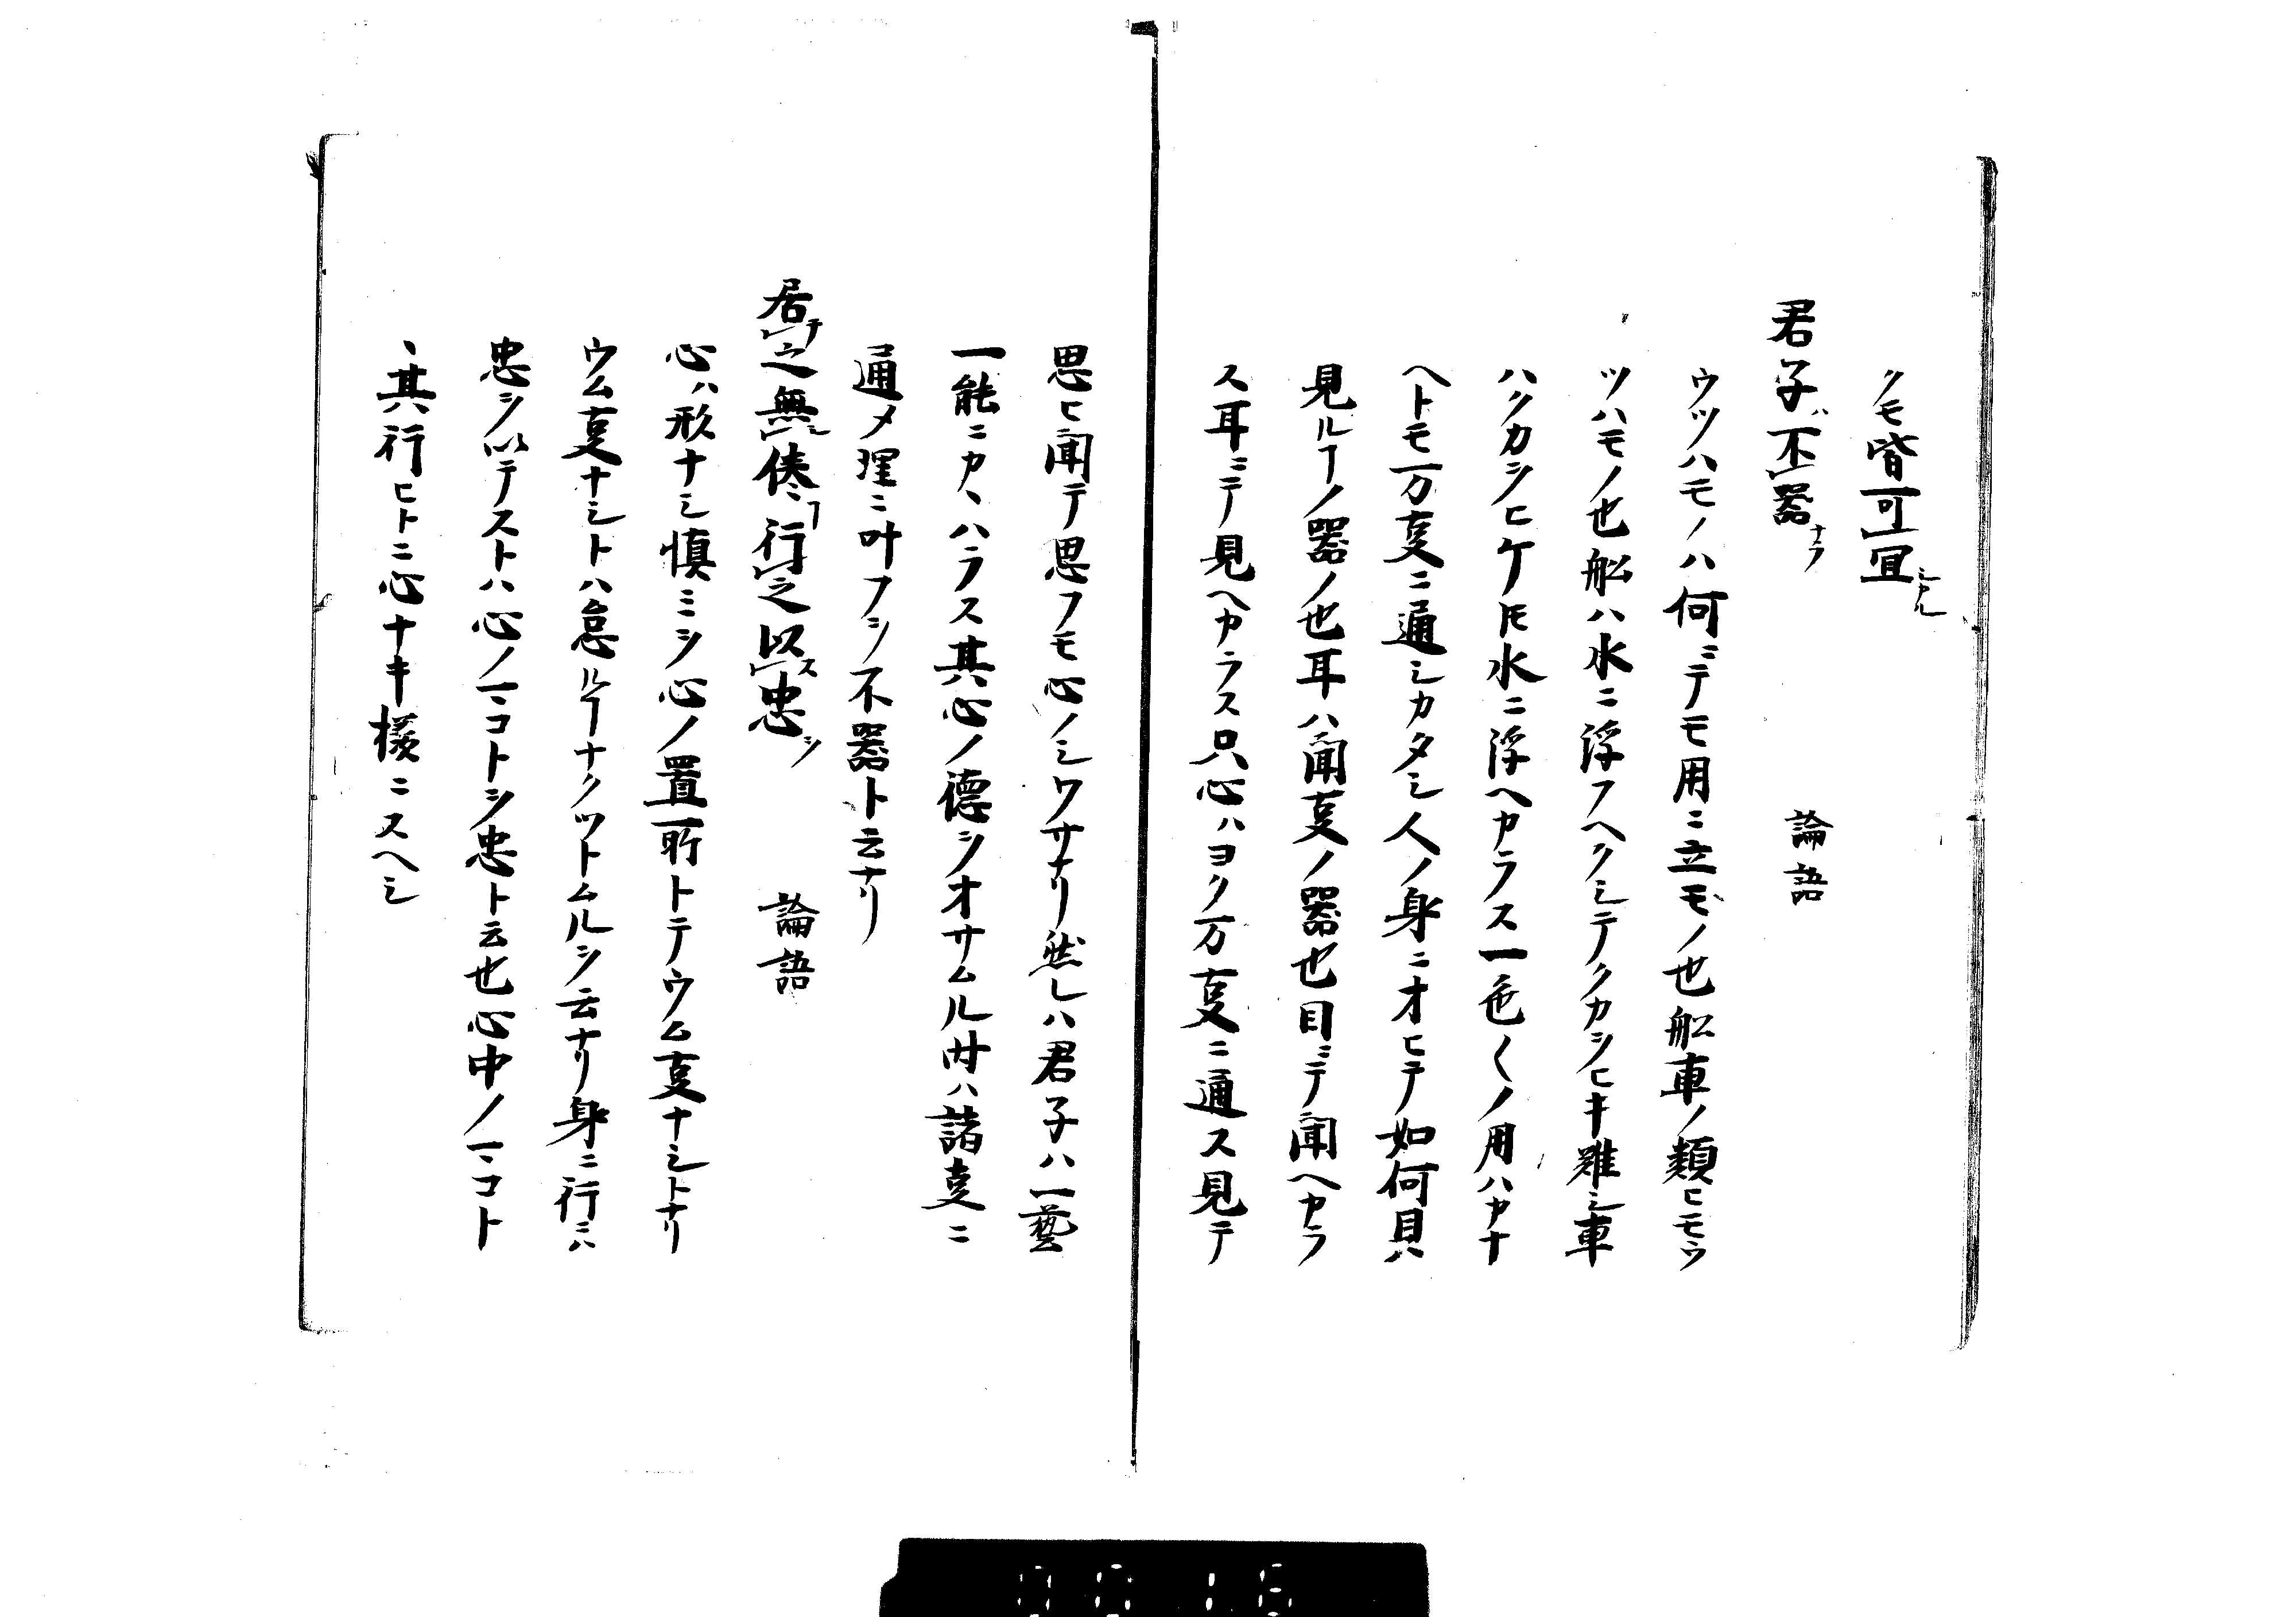 クモ皆可宜シカル
君子ハ不器ナラ 論語
ウツハモノハ何ニテモ用ニ立モノ也舩車ノ類ヒモウ
ツハモノ也舩ハ水ニ浮フヘクシテクカヲヒキ難シ車
ハクカヲヒケ𪜈水ニ浮ヘカラス一色〱ノ用ハカナ
ヘトモ万亊ニ通シカタシ人ノ身ニオヒテ如何貝ハ
見ルヿノ器ノ也耳ハ聞亊ノ器也目ニテ聞ヘカラ
ス耳ニテ見ヘカラス只心ハヨク万亊ニ通ス見テ
思ヒ聞テ思フモ心ノシワサナリ然レハ君子ハ一藝
一能ニカヽハラス其心ノ德ヲオサムル時ハ諸亊ニ
通メ理ニ叶フヲ不器ト云ナリ
居テレ之無レ倦ヿ行レ之以スレ忠ヲ 論語
心ハ形ナシ慎ミヲ心ノ置所トテウム亊ナシトナリ
ウム亊ナシトハ怠ルヿナクツトムルヲ云ナリ身ニ行ニハ
忠ヲ以テストハ心ノマコトヲ忠ト云也心中ノマコト
ヽ其行ヒトニ心ナキ様ニスヘシ